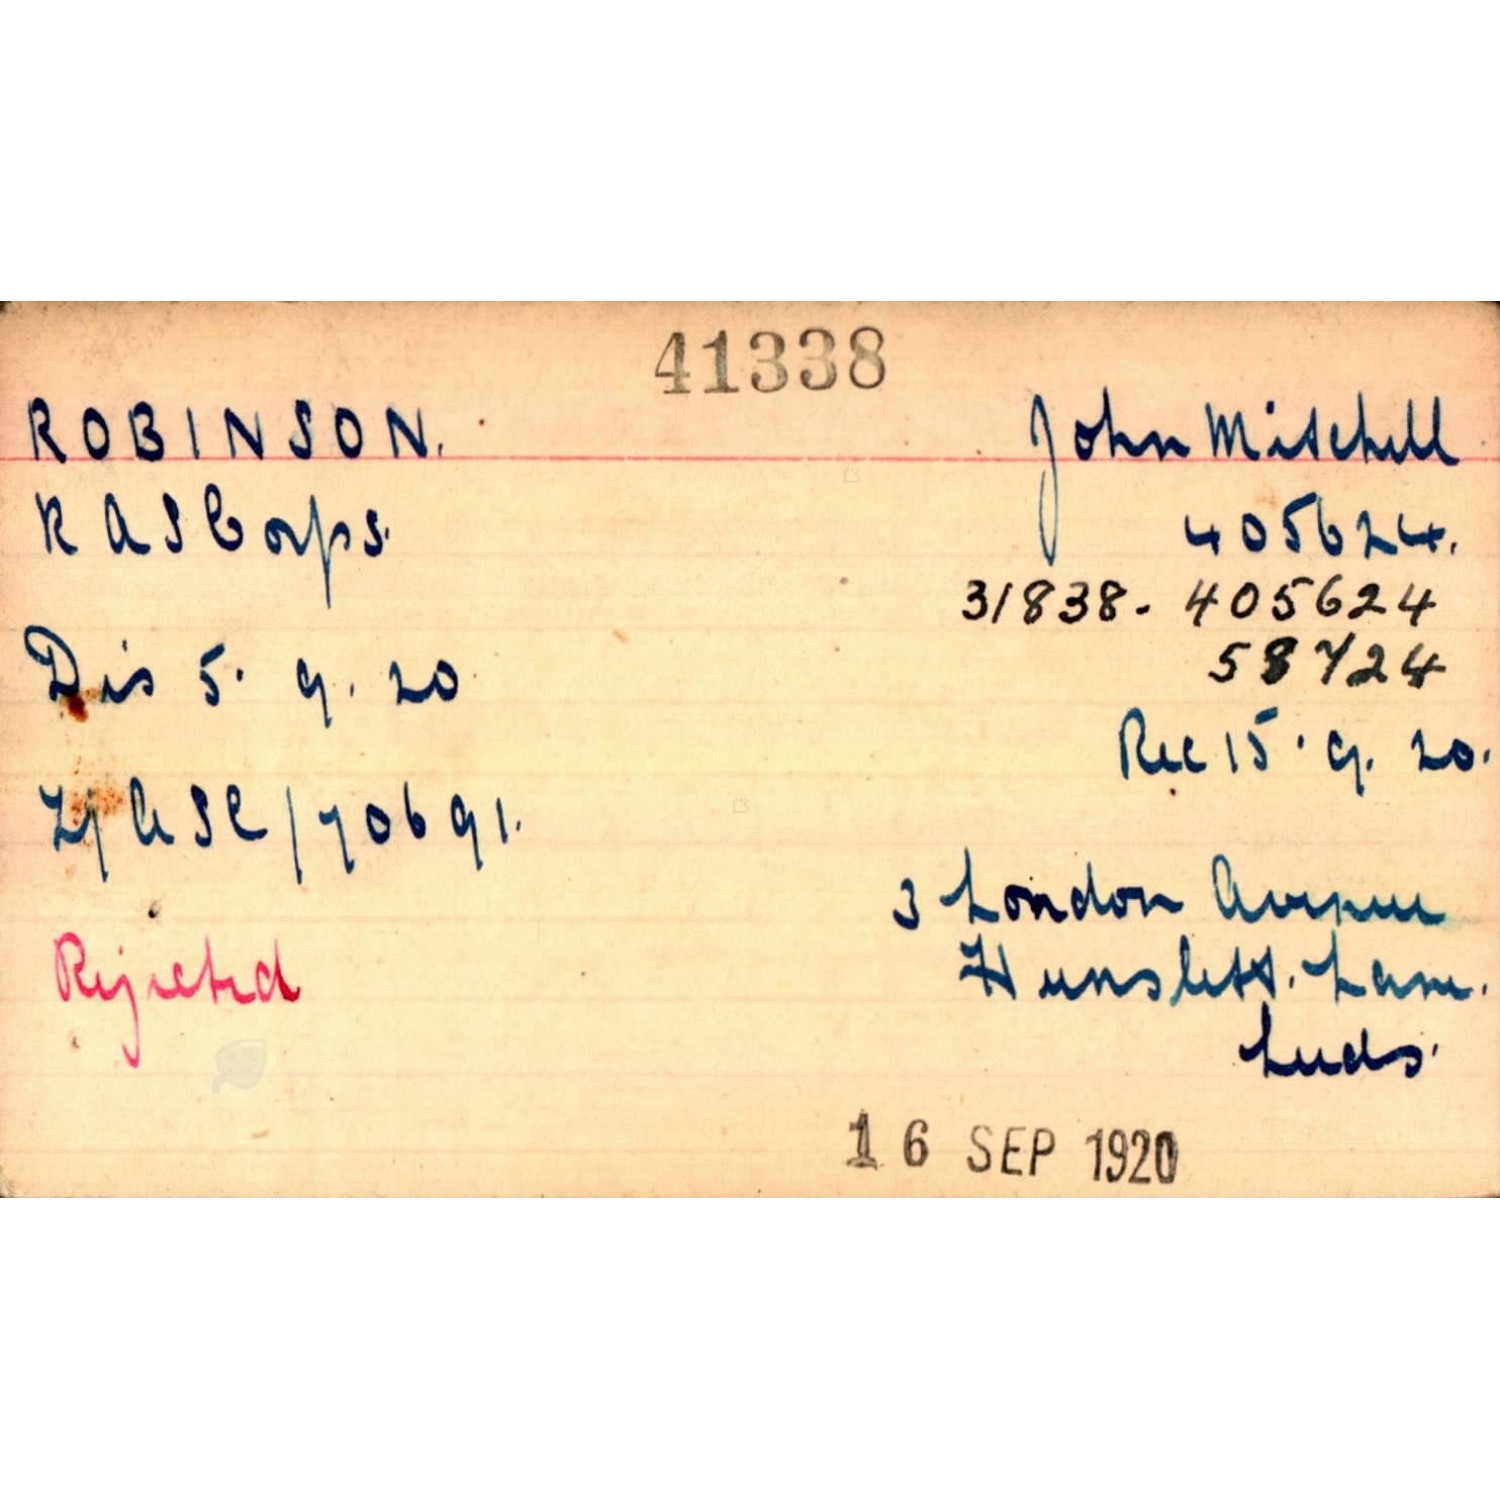 41338
ROBINSON. John Mitchell
R A S Corps. 405624.
31838- 405624
58724
Dis 5. 9. 20
Rec 15. 9. 20.
Z/ASC/70691.
3 London Avenue
Rejected
Hunslett. Lane.
Leeds.
16 SEP 1920